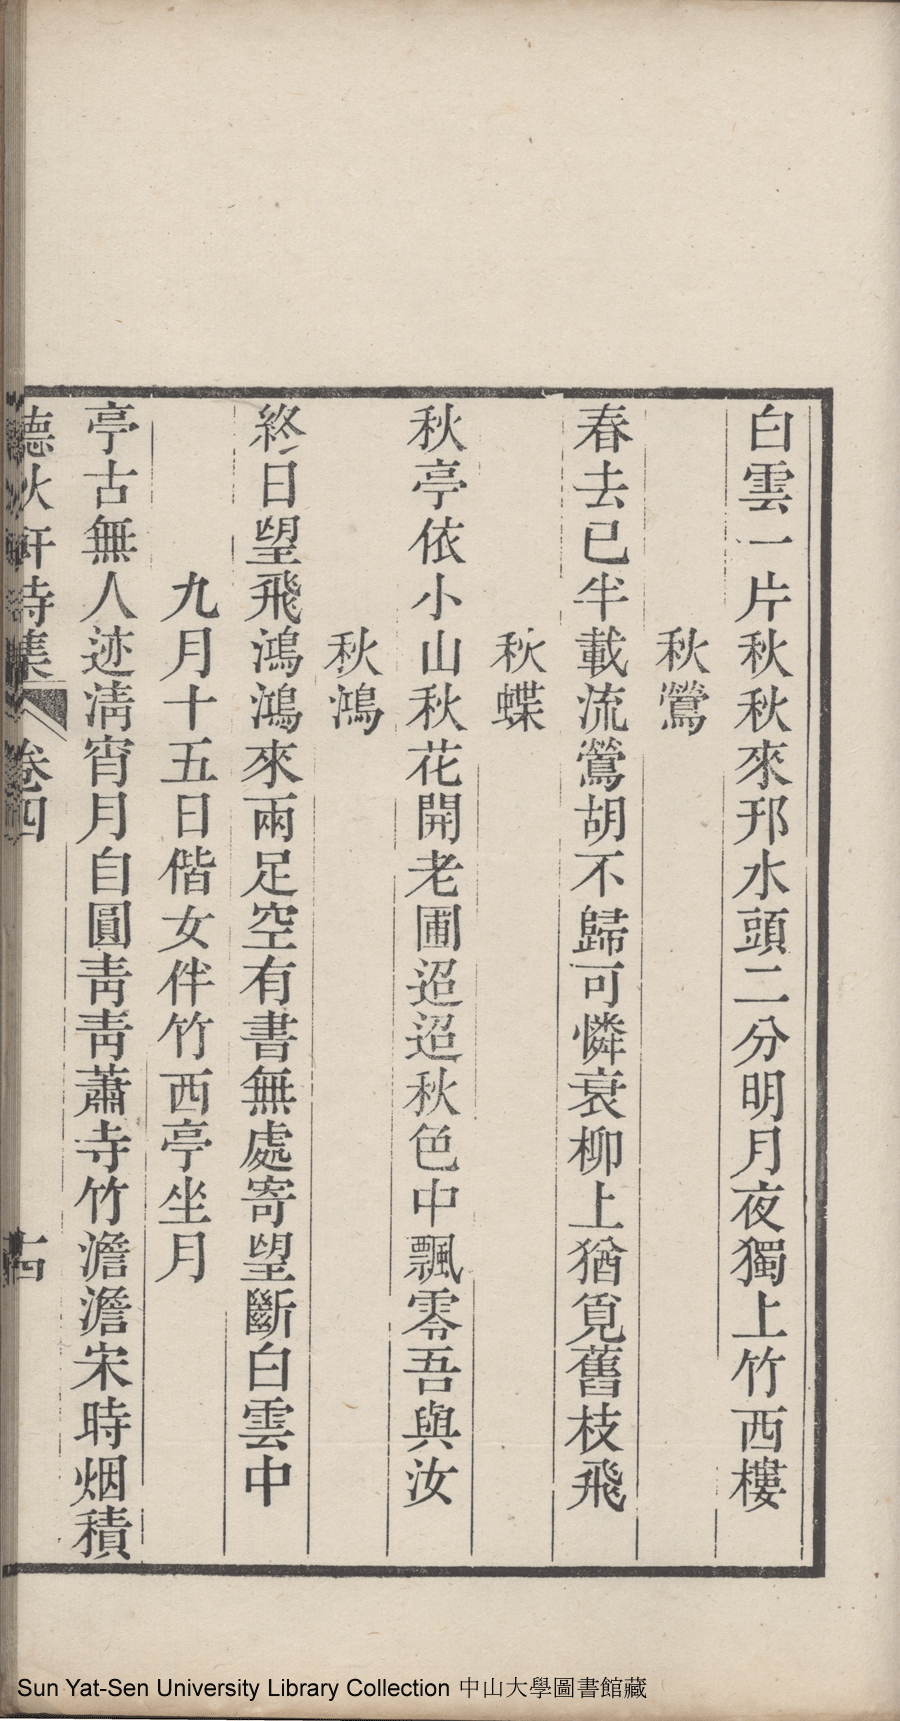 白雲一片秋秋來邗水頭二分明月夜獨上竹西樓
秋鶯
春去已半載流鶯胡不歸可憐衰柳上猶覓舊枝飛
秋蝶
秋亭依小山秋花開老圃迢迢秋色中飄零吾與汝
秋鴻
終日望飛鴻鴻來兩足空有書無處寄望斷白雲中
九月十五日偕女伴竹西亭坐月
亭古無人迹淸宵月自圓靑靑蕭寺竹澹澹宋時烟積
德風軒詩集 卷四 十四
Sun Yat-Sen University Library Collection 中山大學圖書館藏